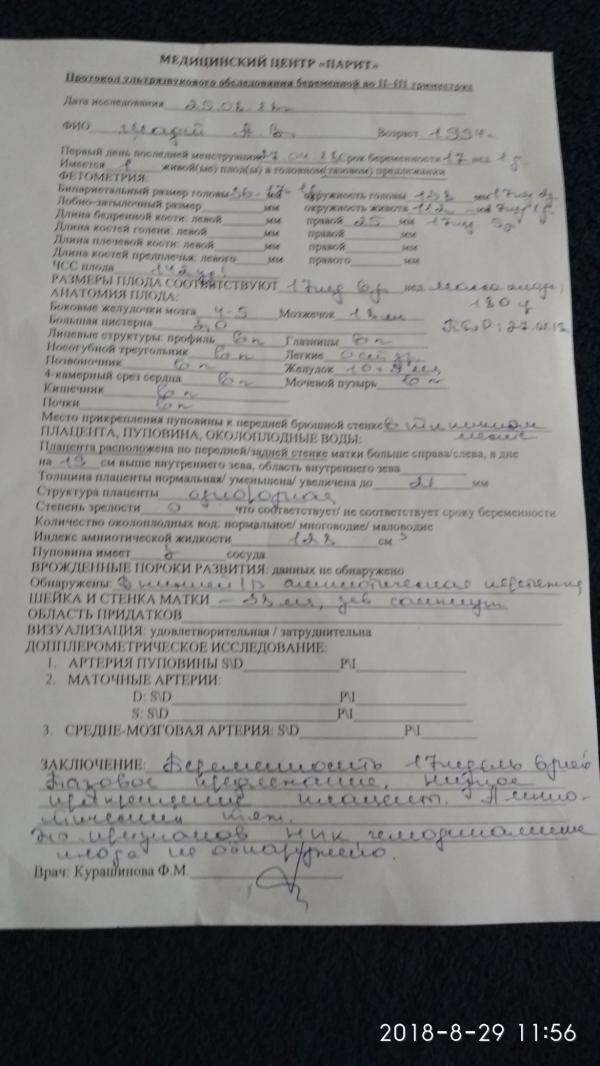 МЕДИЦИНСКИЙ ЦЕНТР «ПАРИТ»
Протокол ультразвукового обследования беременной во II-III триместрах
Дата исследования
ФИО А. В. Возраст 1994г.
Первый день последней менструации 27.04.18 Срок беременности 17 нед
Имеется 1 живой(ые) плод(ы) в головном(тазовом) предлежании
ФЕТОМЕТРИЯ:
Бипариетальный размер головы 36 окружность головы мм 17нд
Лобно-затылочный размер мм окружность живота 112 мм 17нд
Длина бедренной кости: левой мм правой 25 мм 17нд
Длина костей голени: левой мм правой мм
Длина плечевой кости: левой мм правой мм
Длина костей предплечья: левого мм правого мм
ЧСС плода 142 уд
РАЗМЕРЫ ПЛОДА СООТВЕТСТВУЮТ 17нд 6д нед масса плода
180 г
АНАТОМИЯ ПЛОДА:
Боковые желудочки мозга 4-5 Мозжечок 18мм
Большая цистерна 3,0
Лицевые структуры: профиль бп Глазницы бп
Носогубной треугольник бп Легкие
Позвоночник бп Желудок мм
4-камерный срез сердца бп Мочевой пузырь бп
Кишечник бп
Почки бп
Место прикрепления пуповины к передней брюшной стенке в типичном
месте
ПЛАЦЕНТА, ПУПОВИНА, ОКОЛОПЛОДНЫЕ ВОДЫ:
Плацента расположена по передней/задней стенке матки больше справа/слева, в дне
на 19 см выше внутреннего зева, область внутреннего зева
Толщина плаценты нормальная/ уменьшена/ увеличена до 21 мм
Структура плаценты однородная
Степень зрелости 0 что соответствует/ не соответствует сроку беременности
Количество околоплодных вод: нормальное/ многоводие/ маловодие
Индекс амниотической жидкости 122 см
Пуповина имеет 3 сосуда
ВРОЖДЕННЫЕ ПОРОКИ РАЗВИТИЯ: данных не обнаружено
Обнаружены: В нижней 1/3 амниотическая перетяжка
ШЕЙКА И СТЕНКА МАТКИ – 33мм, зев сомкнут
ОБЛАСТЬ ПРИДАТКОВ
ВИЗУАЛИЗАЦИЯ: удовлетворительная / затруднительна
ДОППЛЕРОМЕТРИЧЕСКОЕ ИССЛЕДОВАНИЕ:
1. АРТЕРИЯ ПУПОВИНЫ S\D P\I
2. МАТОЧНЫЕ АРТЕРИИ:
D: S\D P\I
S: S\D P\I
3. СРЕДНЕ-МОЗГОВАЯ АРТЕРИЯ: S\D P\I
ЗАКЛЮЧЕНИЕ: Беременность 17недель 6дней
Тазовое предлежание. Низкое
прикрепление плаценты. Амнио-
тический тяж.
Эхо признаков НМК гемодинамики
плода не обнаружено.
Врач: Курашинова Ф.М.
2018-8-29 11:56